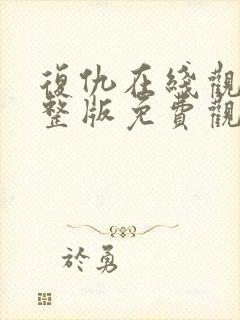 復仇在綫觀
整版免費觀
於勇